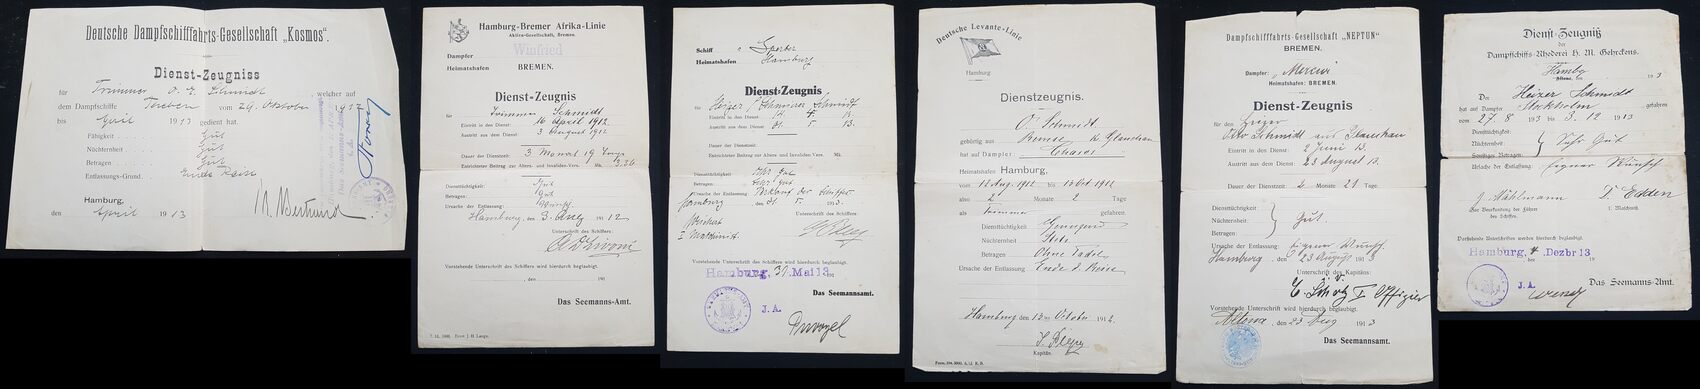 Deutsche Dampfschifffahrts-Gesellschaft „Kosmos".
Dienst-Zeugniss
für Trimmer O. E. Schmidt, welcher auf
dem Dampfschiffe Theben vom 29. Oktober 1912
bis April 1913 gedient hat.
Fähigkeit Gut
Nüchternheit Gut
Betragen Gut
Entlassungs-Grund Ende Reise
Hamburg,
den April 1913
Hamburg-Bremer Afrika-Linie
Aktien-Gesellschaft, Bremen.
Dampfer Winfried
Heimatshafen BREMEN.
Dienst-Zeugnis
für Trimmer Schmidt
Eintritt in den Dienst: 16 April 1912
Austritt aus dem Dienst: 3 August 1912
Dauer der Dienstzeit: 3 Monat 19 Tage
Entrichteter Beitrag zur Alters- und Invaliden-Vers. Mk. 3.36
Diensttüchtigkeit: Gut
Betragen: Gut
Ursache der Entlassung: Wunsch
Hamburg, den 3. Aug 1912
Unterschrift des Schiffers:
Vorstehende Unterschrift des Schiffers wird hierdurch beglaubigt.
, den 191
Das Seemanns-Amt.
Schiff Sperber
Heimatshafen Hamburg
Dienst-Zeugnis
für Heizer Schmidt
Eintritt in den Dienst:
Austritt aus dem Dienst: 31. 5. 13.
Dauer der Dienstzeit:
Entrichteter Beitrag zur Alters- und Invaliden-Vers. Mk.
Diensttüchtigkeit: Sehr gut
Betragen: Sehr gut
Ursache der Entlassung:
Hamburg, den 31. 5. 1913.
Unterschrift des Schiffers:
I Maschinist
Vorstehende Unterschrift des Schiffers wird hierdurch beglaubigt.
Hamburg, 31. Mai 13
Das Seemannsamt.
J. A.
Deutsche Levante-Linie
Hamburg
Dienstzeugnis.
O. Schmidt
gebürtig aus Remse b. Glauchau
hat auf Dampfer Chaios
Heimatshafen Hamburg,
vom 12 Aug. 1912 bis 13 Oct 1912
also 2 Monate 2 Tage
als Trimmer gefahren.
Diensttüchtigkeit Genügend
Nüchternheit Stets
Betragen Ohne Tadel
Ursache der Entlassung Ende d. Reise
Hamburg den 13 ten October 1912.
Kapitän.
Dampfschifffahrts-Gesellschaft „NEPTUN"
BREMEN.
Dampfer: „Mercur"
Heimatshafen: BREMEN.
Dienst-Zeugnis
für den Heizer
Otto Schmidt aus Glauchau
Eintritt in den Dienst: 2 Juni 13.
Austritt aus dem Dienst: 23 August 13.
Dauer der Dienstzeit 2 Monate 21 Tage
Diensttüchtigkeit
Nüchternheit Gut.
Betragen
Ursache der Entlassung eigener Wunsch.
Hamburg, den 23 August 1913
Unterschrift des Kapitäns:
I Offizier
Vorstehende Unterschrift wird hierdurch beglaubigt.
Altona, den 23 Aug 1913
Das Seemannsamt.
Dienst-Zeugniß
der
Dampfschiffs-Rhederei H. M. Gehrckens.
Hambg
Altona, den 1913
Der Heizer Schmidt
hat auf Dampfer Stockholm gefahren
vom 27. 8 1913 bis 3. 12 1913
Diensttüchtigkeit
Nüchternheit Sehr Gut
Sonstiges Betragen:
Ursache der Entlassung: Eigner Wunsch
J. Wählmann D. Edden
Zur Beurkundung der Führer des Schiffes 1. Maschinist.
Vorstehende Unterschriften werden hierdurch beglaubigt.
Hamburg, 4. Dezbr 13
J. A. Das Seemanns-Amt.